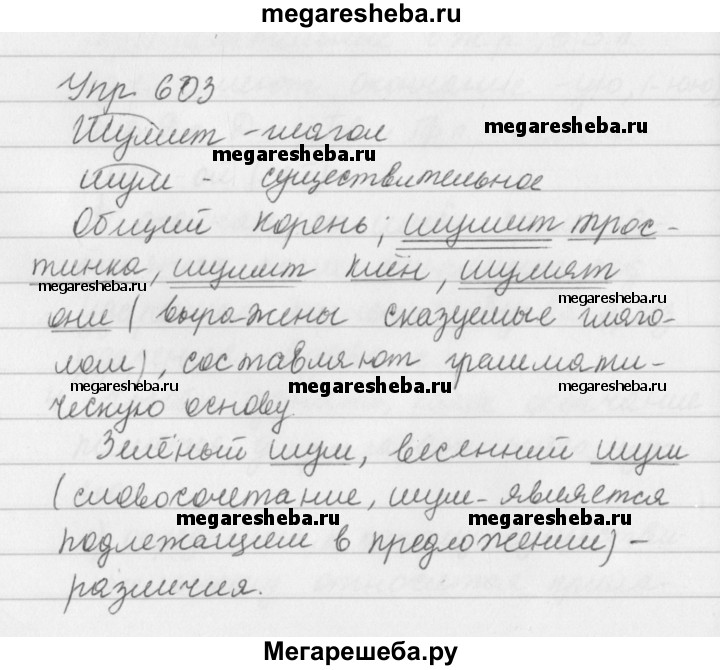 megaresheba.ru
Упр 603
Шумит - глагол
megaresheba.ru
megaresheba.ru
шум - существительное
megaresheba.ru
Общий корень; шумит трос-
тинка, шумит клён, шумят
megaresheba.ru
megaresheba.ru
они (выражены сказуемые глаго-
лом), составляют граммати-
megaresheba.ru
megaresheba.ru
ческую основу.
Зелёный шум, весенний шум
(словосочетание, шум - является
megaresheba.ru
megaresheba.ru
подлежащием в предложении) -
различия.
Мегарешеба.ру